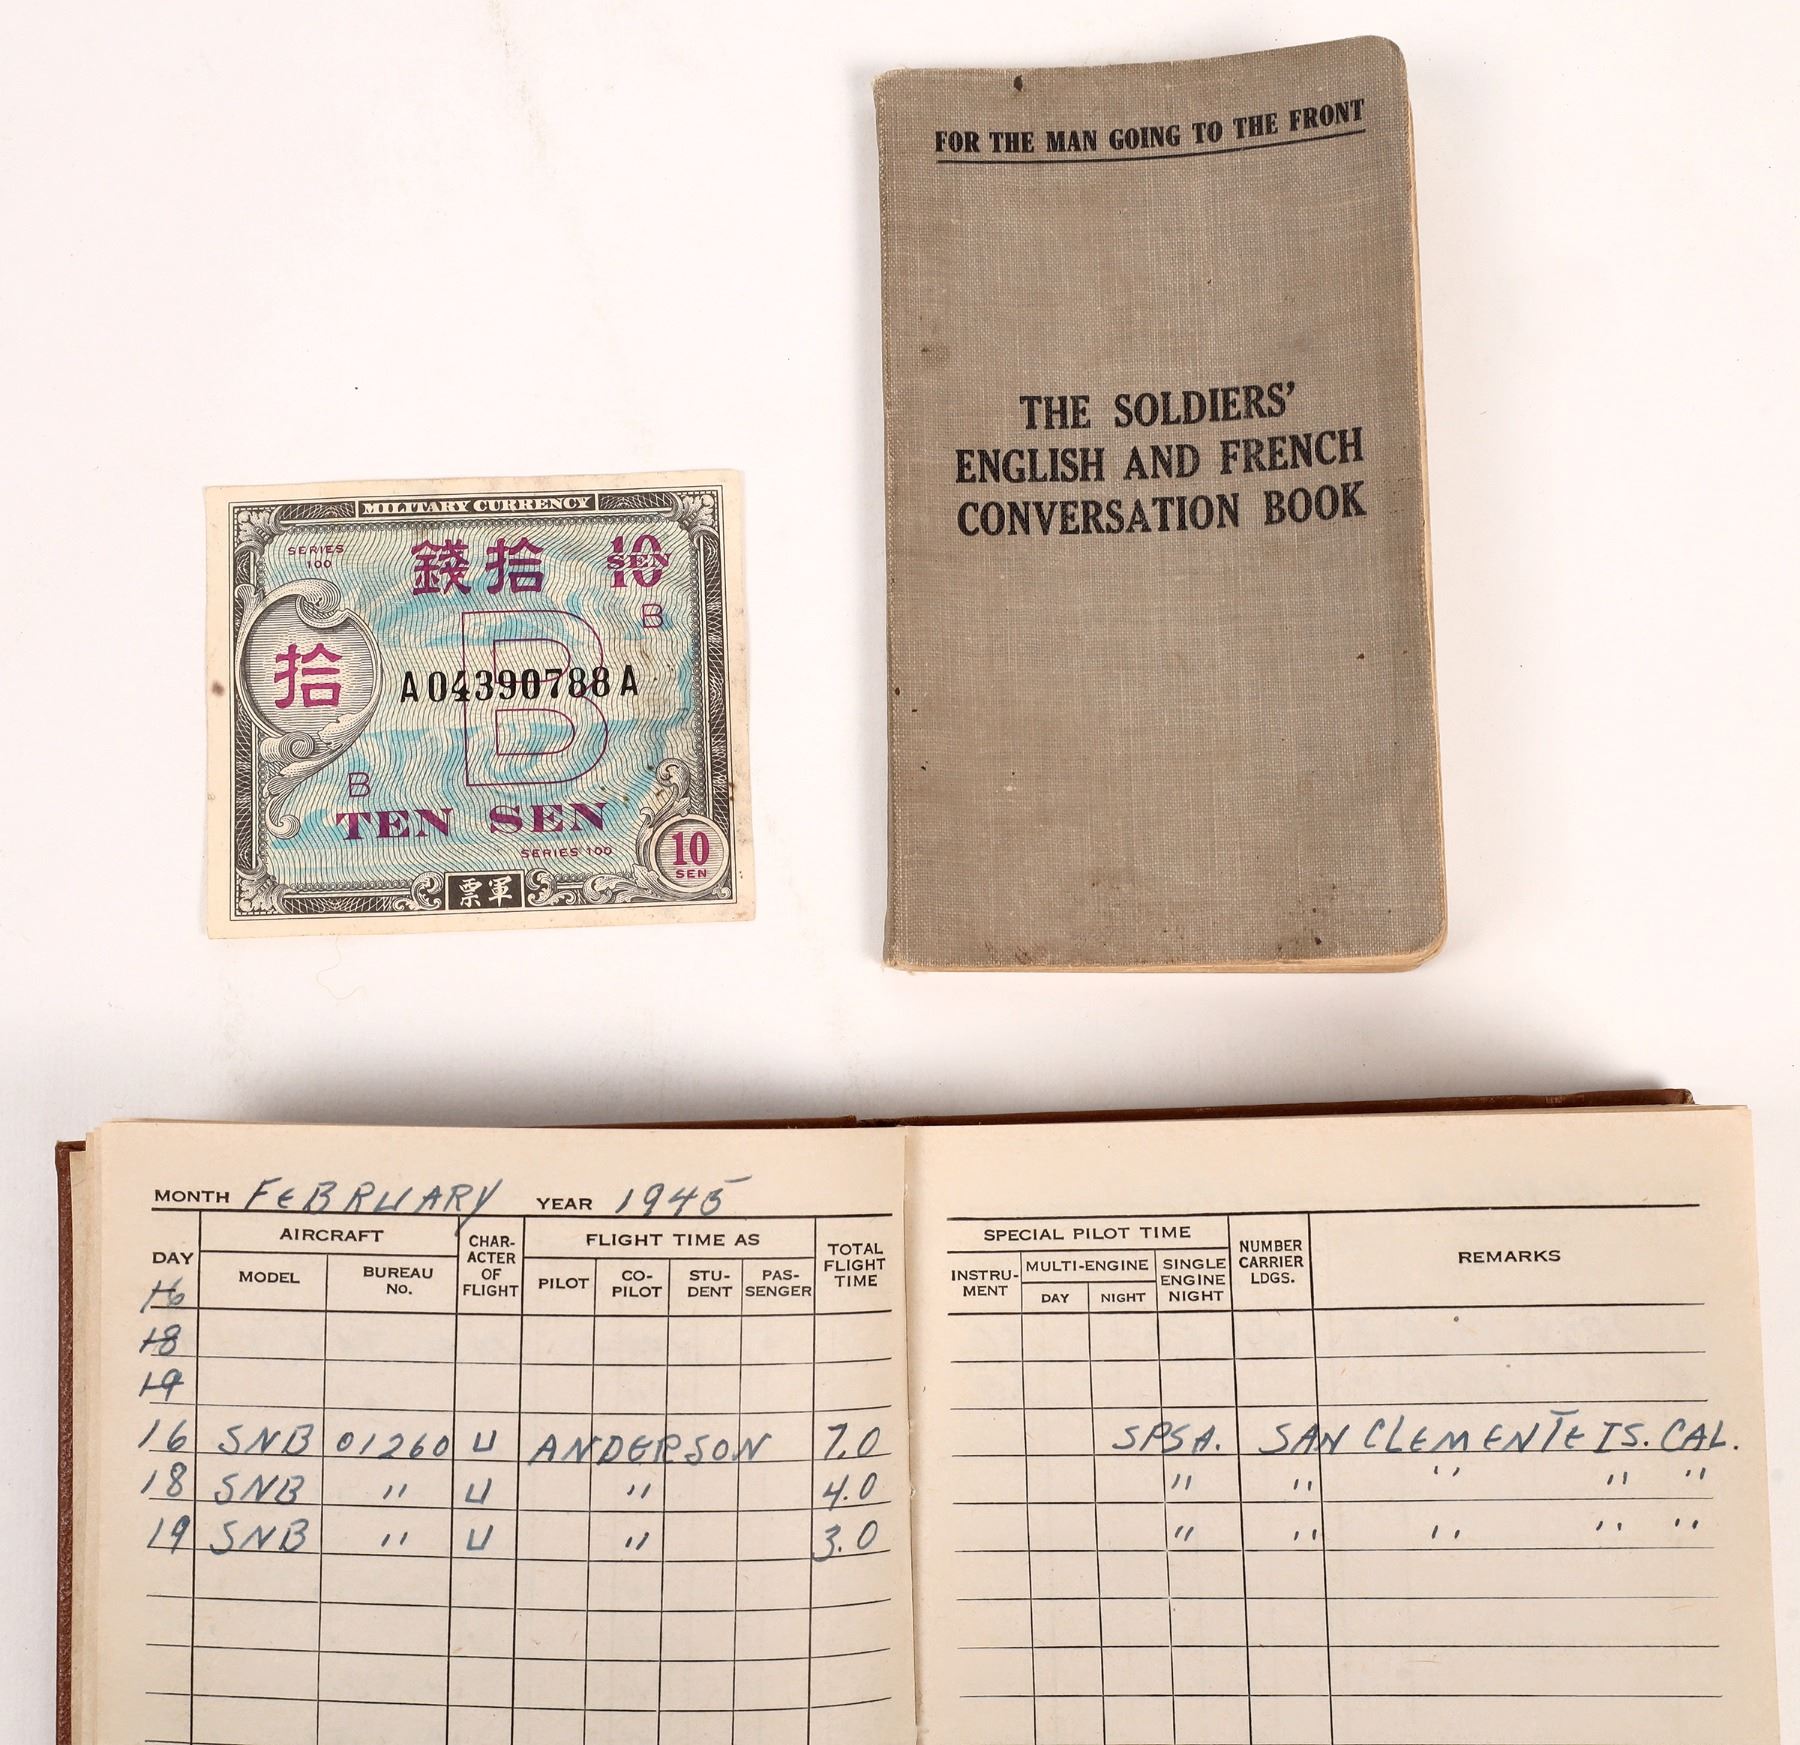 FOR THE MAN GOING TO THE FRONT
THE SOLDIERS'
ENGLISH AND FRENCH
CONVERSATION BOOK
MILITARY CURRENCY
SERIES
100
錢拾
10
SEN
B
拾
B
A04390788A
B
TEN SEN
SERIES 100
10
SEN
票軍
MONTH FEBRUARY YEAR 1945
DAY AIRCRAFT CHARACTER OF FLIGHT FLIGHT TIME AS TOTAL FLIGHT TIME SPECIAL PILOT TIME NUMBER CARRIER LDGS. REMARKS
MODEL BUREAU No. PILOT CO-PILOT STUDENT PASSENGER INSTRUMENT MULTI-ENGINE SINGLE ENGINE NIGHT
DAY NIGHT
16
18
19
16 SNB 01260 U ANDERSON 7.0 SPSA. SAN CLEMENTE IS. CAL.
18 SNB " U " 4.0 " " " " "
19 SNB " U " 3.0 " " " " "